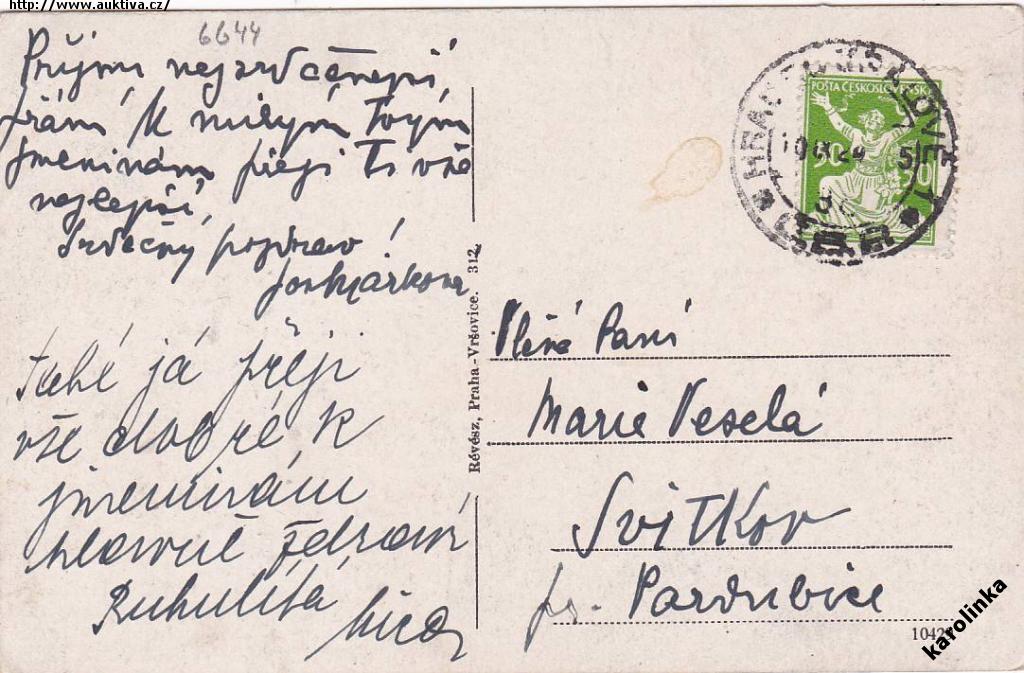 http://www.auktiva.cz/
6644
Přijmi nejsrdečnější
přání K milým Tvým
jmeninám přeji Ti vše
nejlepší,
Srdečný pozdrav!
Také já přeji
vše dobré k
jmeninám
hlavně zdraví
Révész, Praha-Vršovice. 312.
POŠTA ČESKOSLOVENSKÁ
Vážená Paní
Marie Veselá
Svitkov
p. Pardubice
karolinka